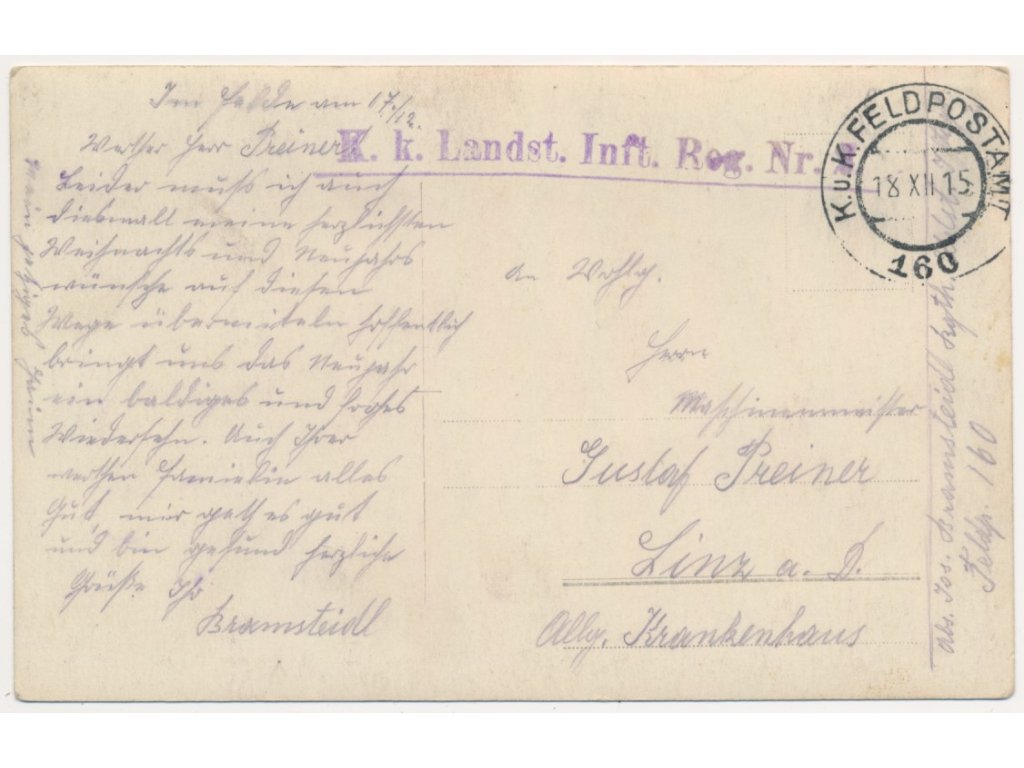 Im Felde am 17./12.
Werther Herr Preiner
Leider muſs ich auch
diesmall meine herzlichsten
Weihnachts und Neujahrs
wünsche auf diesen
Wege übermiteln hoffentlich
bringt uns das Neujahr
ein baldiges und frohes
Wiedersehn. Auch Ihrer
werthen Familie alles
Gut, mir geth es gut
und bin gesund herzliche
Grüße Ihr
Bramsteidl
mein
K. k. Landst. Inft. Reg. Nr.
K.u.K. FELDPOSTAMT
18 XII 15
160
An Wohlg.
Herrn
Maschinenmeister
Gustaf Preiner
Linz a. D.
Allg. Krankenhaus
Abs. Jos. Bramsteidl
Feldp. 160